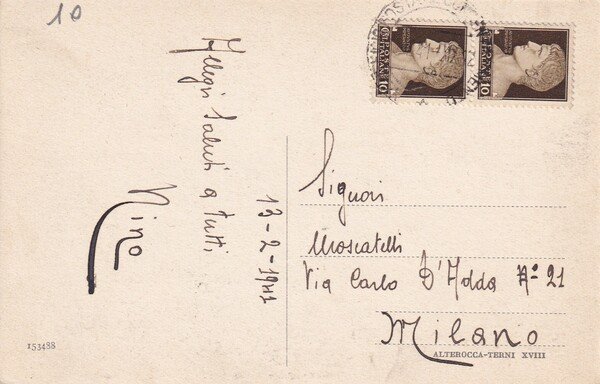 10
Allegri Saluti a tutti
Nino
13-2-1941
Signori
Moscatelli
Via Carlo D'Adda N° 21
Milano
ALTEROCCA-TERNI XVIII
153488
10
10